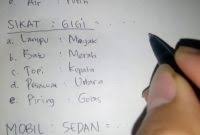 e. Air : Putih
SIKAT : GIGI = . . . . : . . .
a. Lampu : Minyak
b. Batu : Merah
c. Topi : Kepala
d. Pesawat : Udara
e. Piring : Gelas
MOBIL : SEDAN = . . .